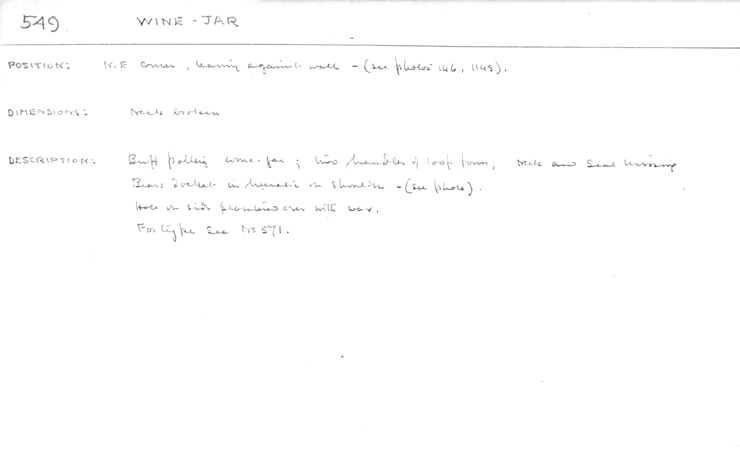 549 WINE-JAR
POSITION: N.E corner, leaning against wall - (see photos 146, 1148).
DIMENSIONS: Neck broken
DESCRIPTION: Buff pottery wine-jar; two handles of loop form; neck and seal missing
Bears docket in hieratic on shoulder - (see photo).
Hole on side plastered over with wax.
For type see No 571.